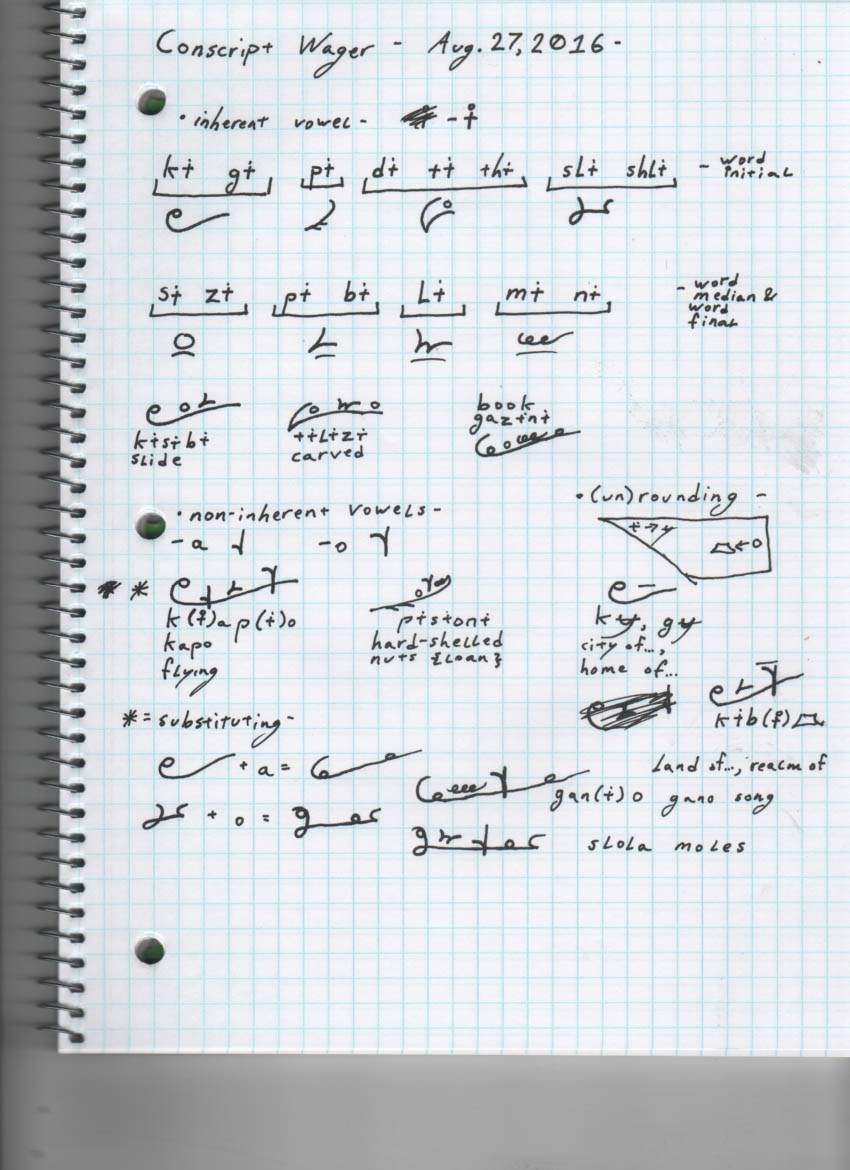 Conscript Wager - Aug. 27, 2016 -
• inherent vowel - - ɨ
kɨ gɨ pɨ dɨ tɨ thɨ sLɨ shLɨ - word initial
sɨ zɨ pɨ bɨ Lɨ mɨ nɨ - word median & word final
kɨsɨbɨ
slide
tɨLɨzɨ
carved
book
gazɨnɨ
• non-inherent vowels -
- a - o
k(ɨ)ap(ɨ)o
kapo
flying
pɨstonɨ
hard-shelled
nuts {Loan}
• (un)rounding -
ɨ → y
← o
ky, gy
city of...,
home of...
kɨb(ɨ)
Land of..., reacm of
* = substituting -
+ a =
gan(ɨ)o gano song
+ o =
sLoLa moLes